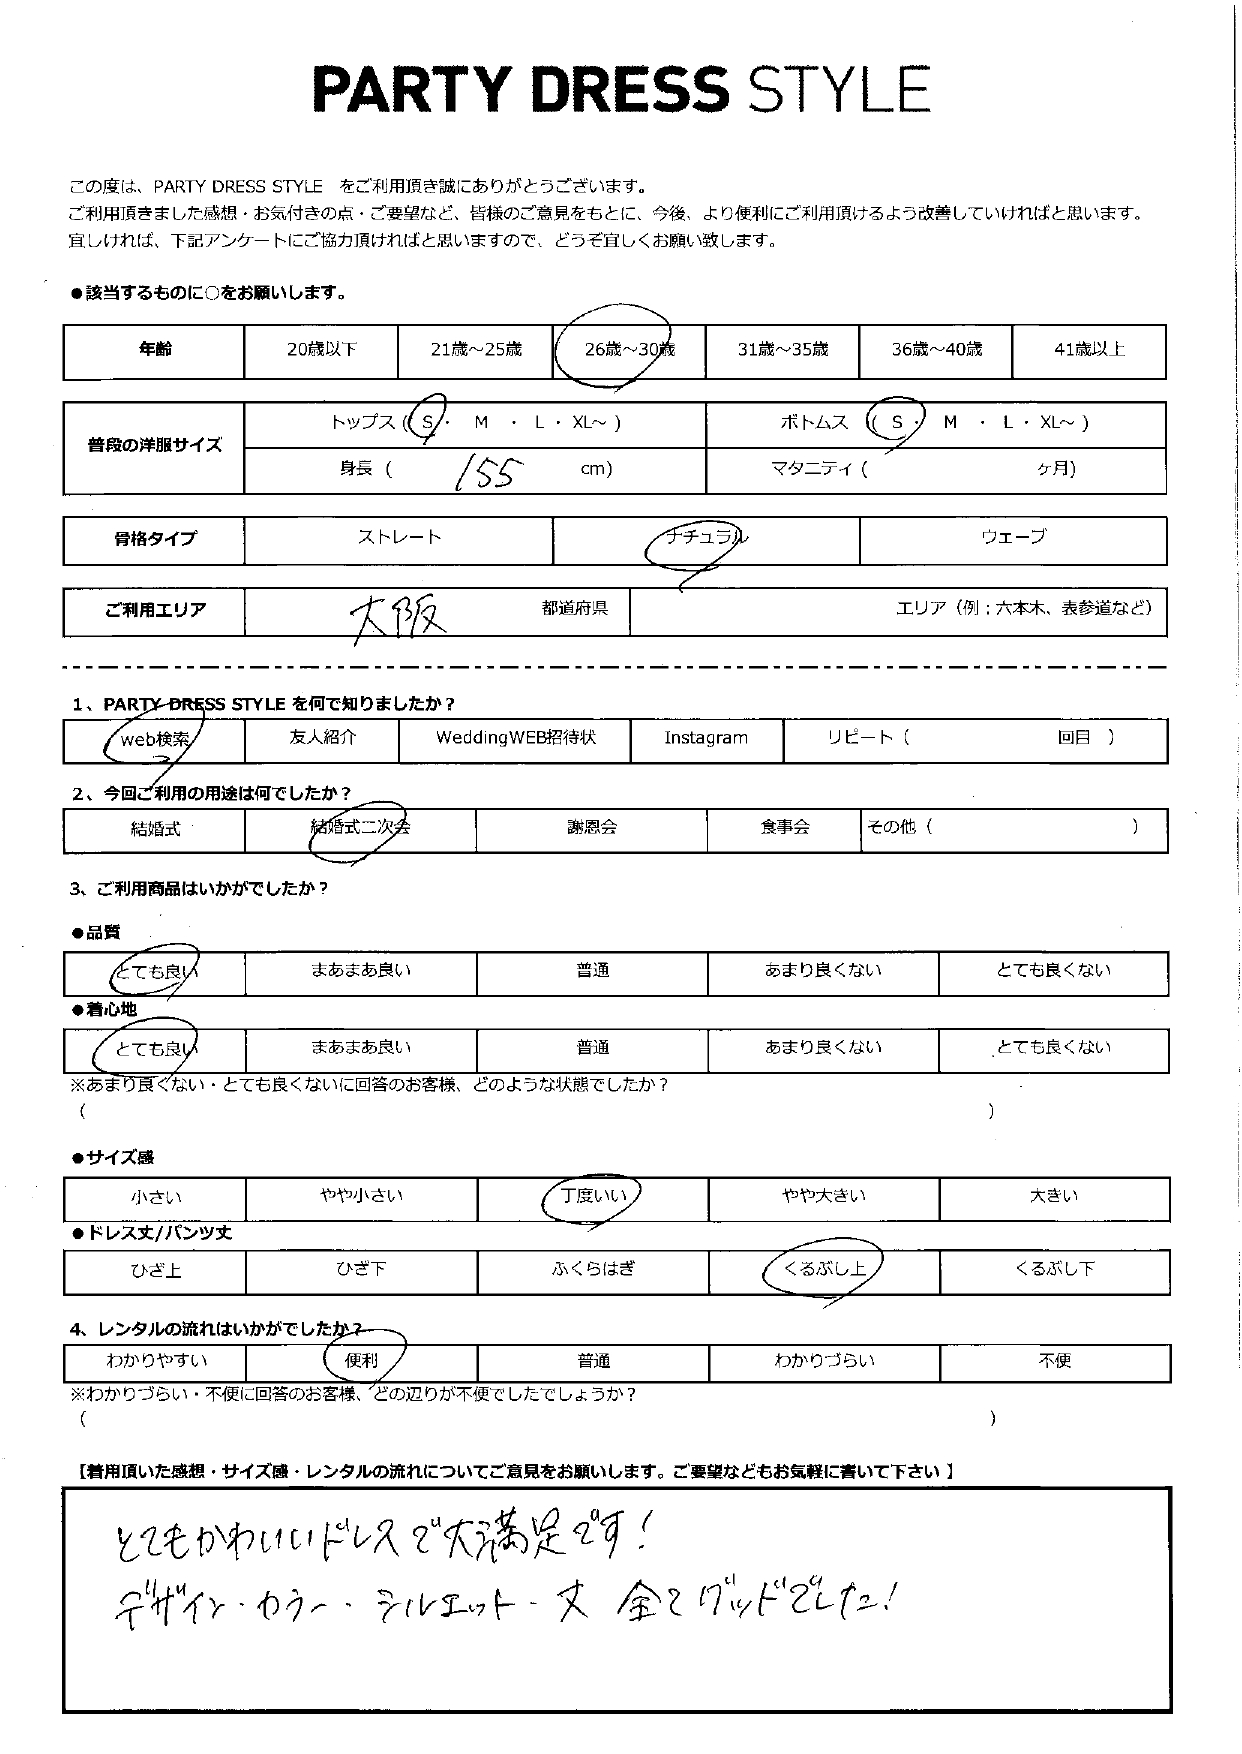 PARTY DRESS STYLE
この度は、PARTY DRESS STYLE　をご利用頂き誠にありがとうございます。
ご利用頂きました感想・お気付きの点・ご要望など、皆様のご意見をもとに、今後、より便利にご利用頂けるよう改善していければと思います。
宜しければ、下記アンケートにご協力頂ければと思いますので、どうぞ宜しくお願い致します。
●該当するものに○をお願いします。
年齢 20歳以下 21歳～25歳 26歳～30歳 31歳～35歳 36歳～40歳 41歳以上
普段の洋服サイズ トップス ( S ・ M ・ L ・ XL～ ) ボトムス ( S ・ M ・ L ・ XL～ )
身長 ( 155 cm) マタニティ ( ケ月)
骨格タイプ ストレート ナチュラル ウェーブ
ご利用エリア 大阪 都道府県 エリア（例：六本木、表参道など）
1、PARTY DRESS STYLE を何で知りましたか？
web検索 友人紹介 WeddingWEB招待状 Instagram リピート（ 回目 ）
2、今回ご利用の用途は何でしたか？
結婚式 結婚式二次会 謝恩会 食事会 その他（ ）
3、ご利用商品はいかがでしたか？
●品質
とても良い まあまあ良い 普通 あまり良くない とても良くない
●着心地
とても良い まあまあ良い 普通 あまり良くない とても良くない
※あまり良くない・とても良くないに回答のお客様、どのような状態でしたか？
（ ）
●サイズ感
小さい やや小さい 丁度いい やや大きい 大きい
●ドレス丈/パンツ丈
ひざ上 ひざ下 ふくらはぎ くるぶし上 くるぶし下
4、レンタルの流れはいかがでしたか？
わかりやすい 便利 普通 わかりづらい 不便
※わかりづらい・不便に回答のお客様、どの辺りが不便でしたでしょうか？
（ ）
【着用頂いた感想・サイズ感・レンタルの流れについてご意見をお願いします。ご要望などもお気軽に書いて下さい 】
とてもかわいいドレスで大満足です！
デザイン・カラー・シルエット・丈 全てグッドでした！